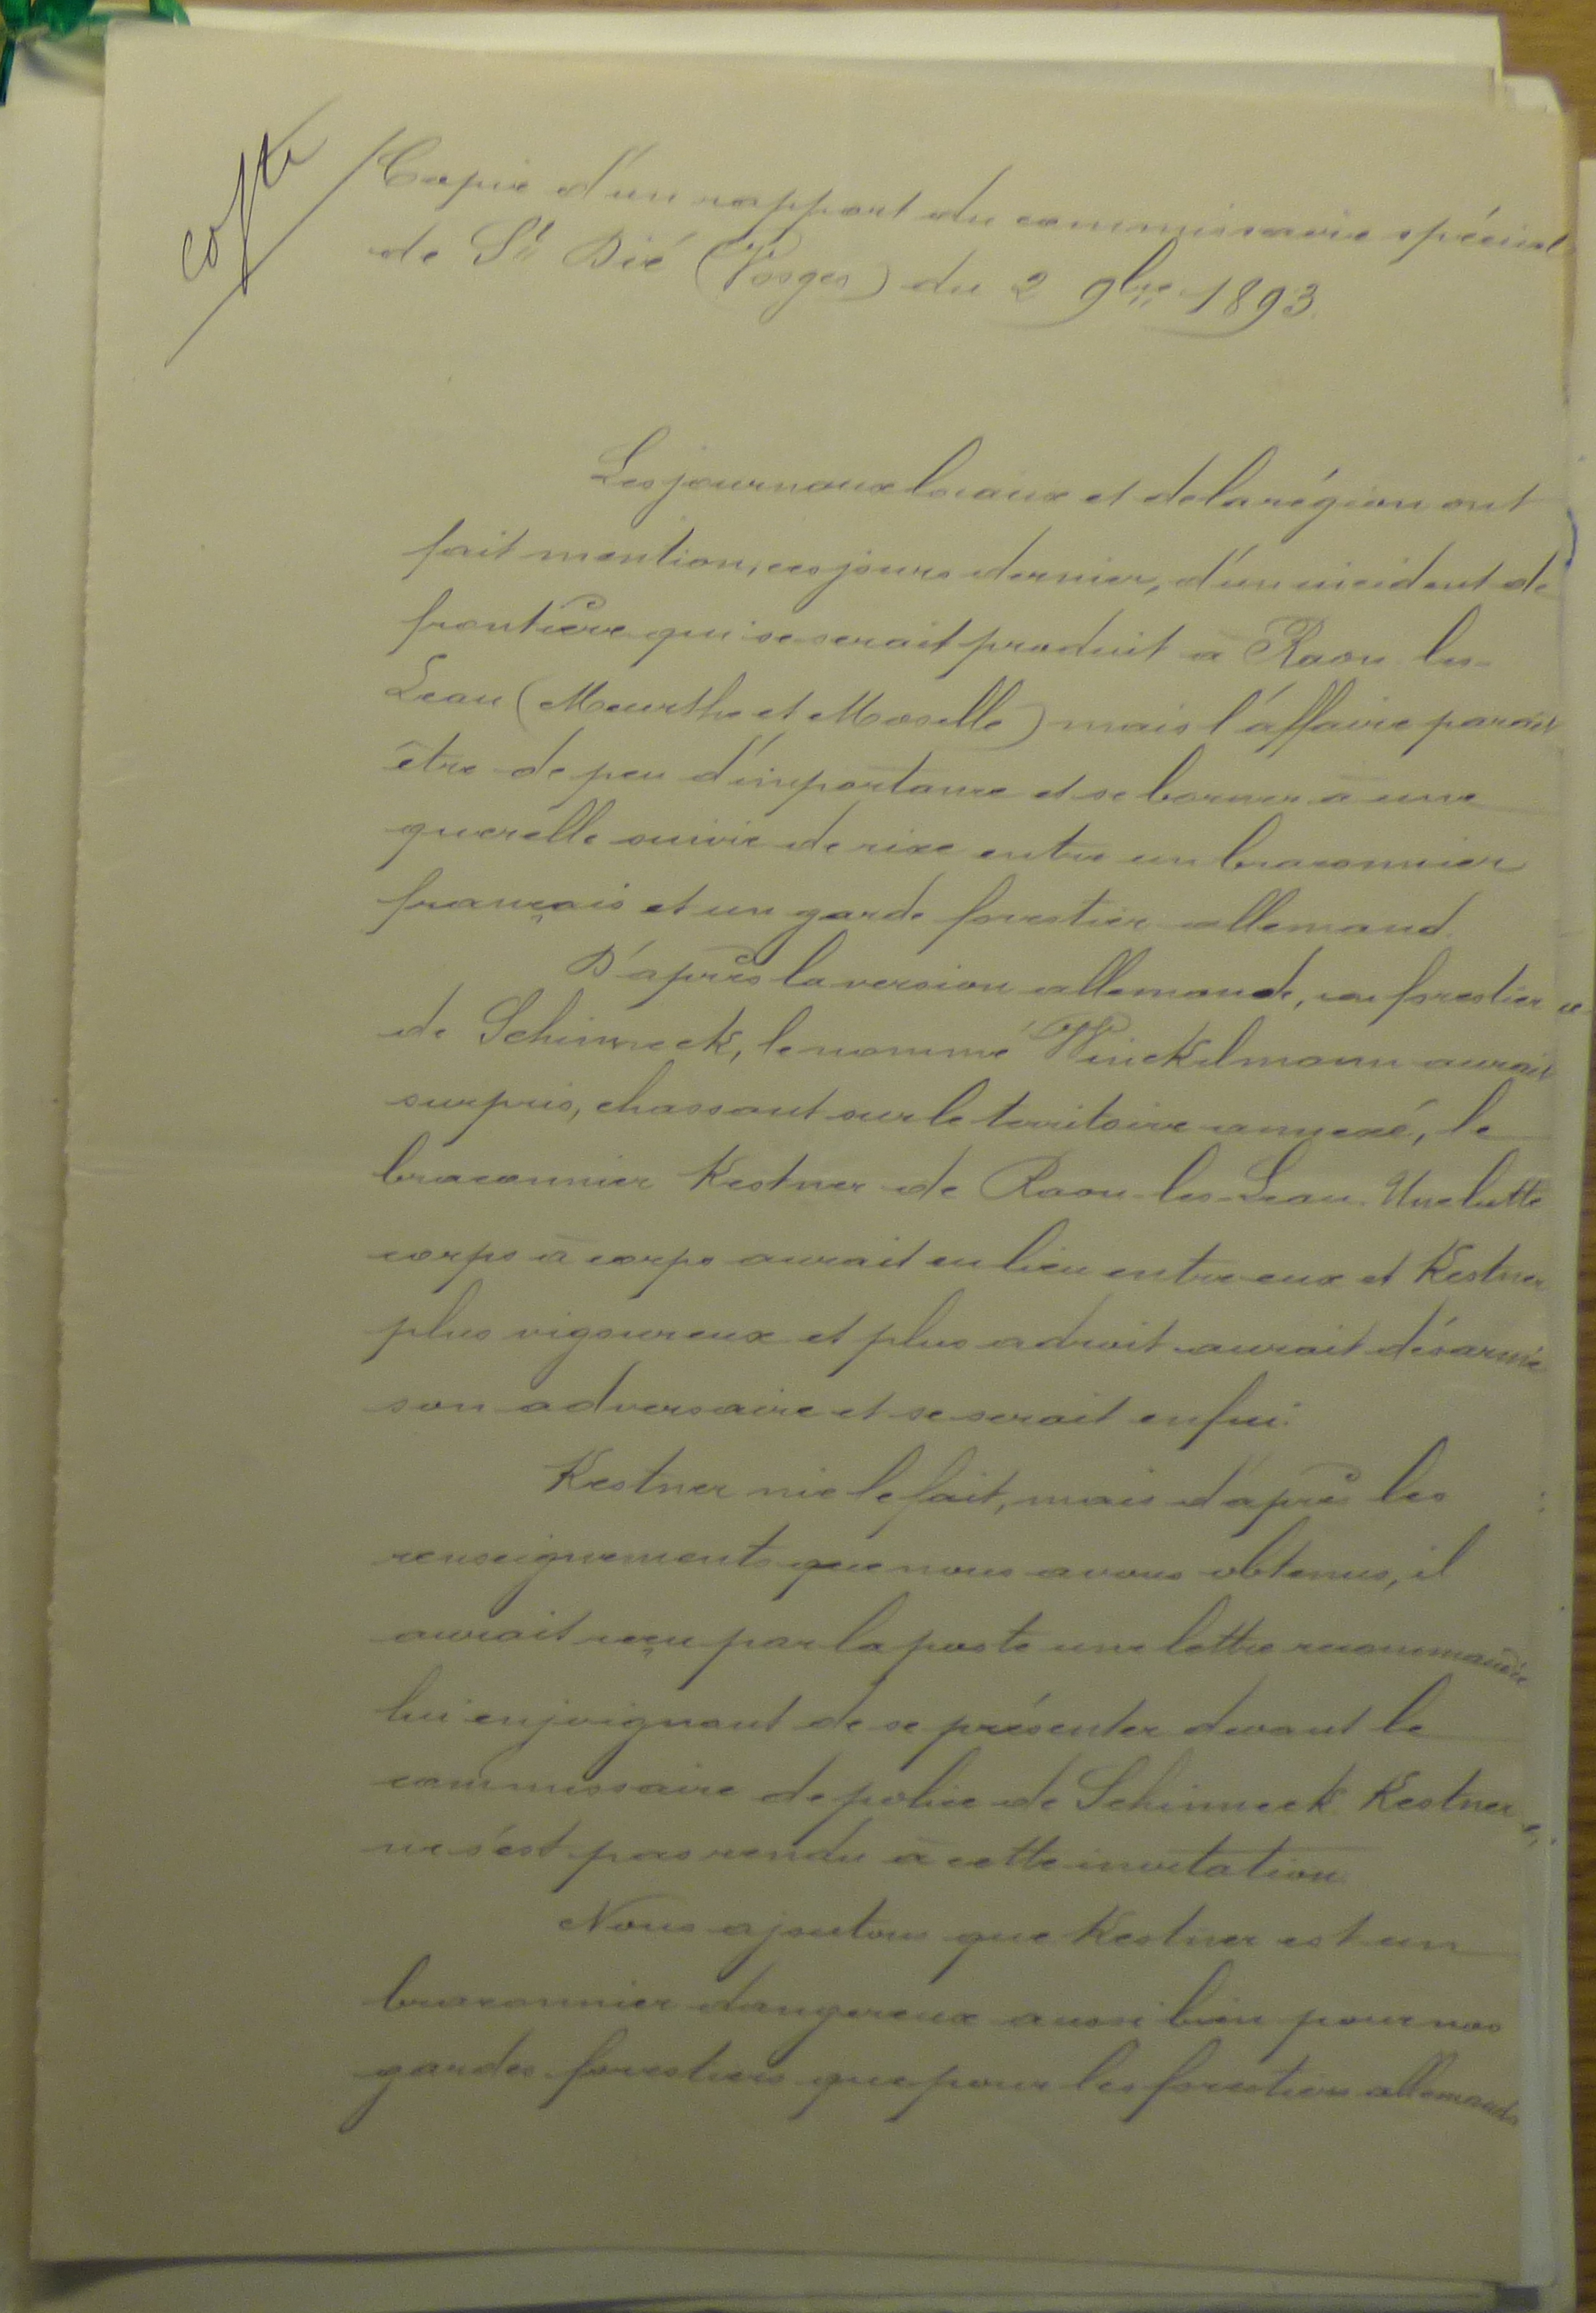 copie
Copie d'un rapport du commissaire spécial
de St Dié (Vosges) du 2 9bre 1893.
Les journaux locaux et de la région ont
fait mention, ces jours dernier, d'un incident de
frontière qui se serait produit à Raon les-
Leau (Meurthe et Moselle) mais l'affaire parait
être de peu d'importance et se borner à une
querelle suivie de rixe entre un braconnier
français et un garde forestier allemand.
D'après la version allemande, un forestier
de Schirmeck, le nommé Winckelmann aurait
surpris, chassant sur le territoire annexé, le
braconnier Kestner de Raon-les-Leau. Une lutte
corps à corps aurait eu lieu entre eux et Kestner
plus vigoureux et plus adroit aurait désarmé
son adversaire et se serait enfui.
Kestner nie le fait, mais d'après les
renseignements que nous avons obtenus, il
aurait reçu par la poste une lettre recommandée
lui enjoignant de se présenter devant le
commissaire de police de Schirmeck. Kestner
ne s'est pas rendu à cette invitation.
Nous ajoutons que Kestner est un
braconnier dangereux aussi bien pour nos
gardes forestiers que pour les forestiers allemands